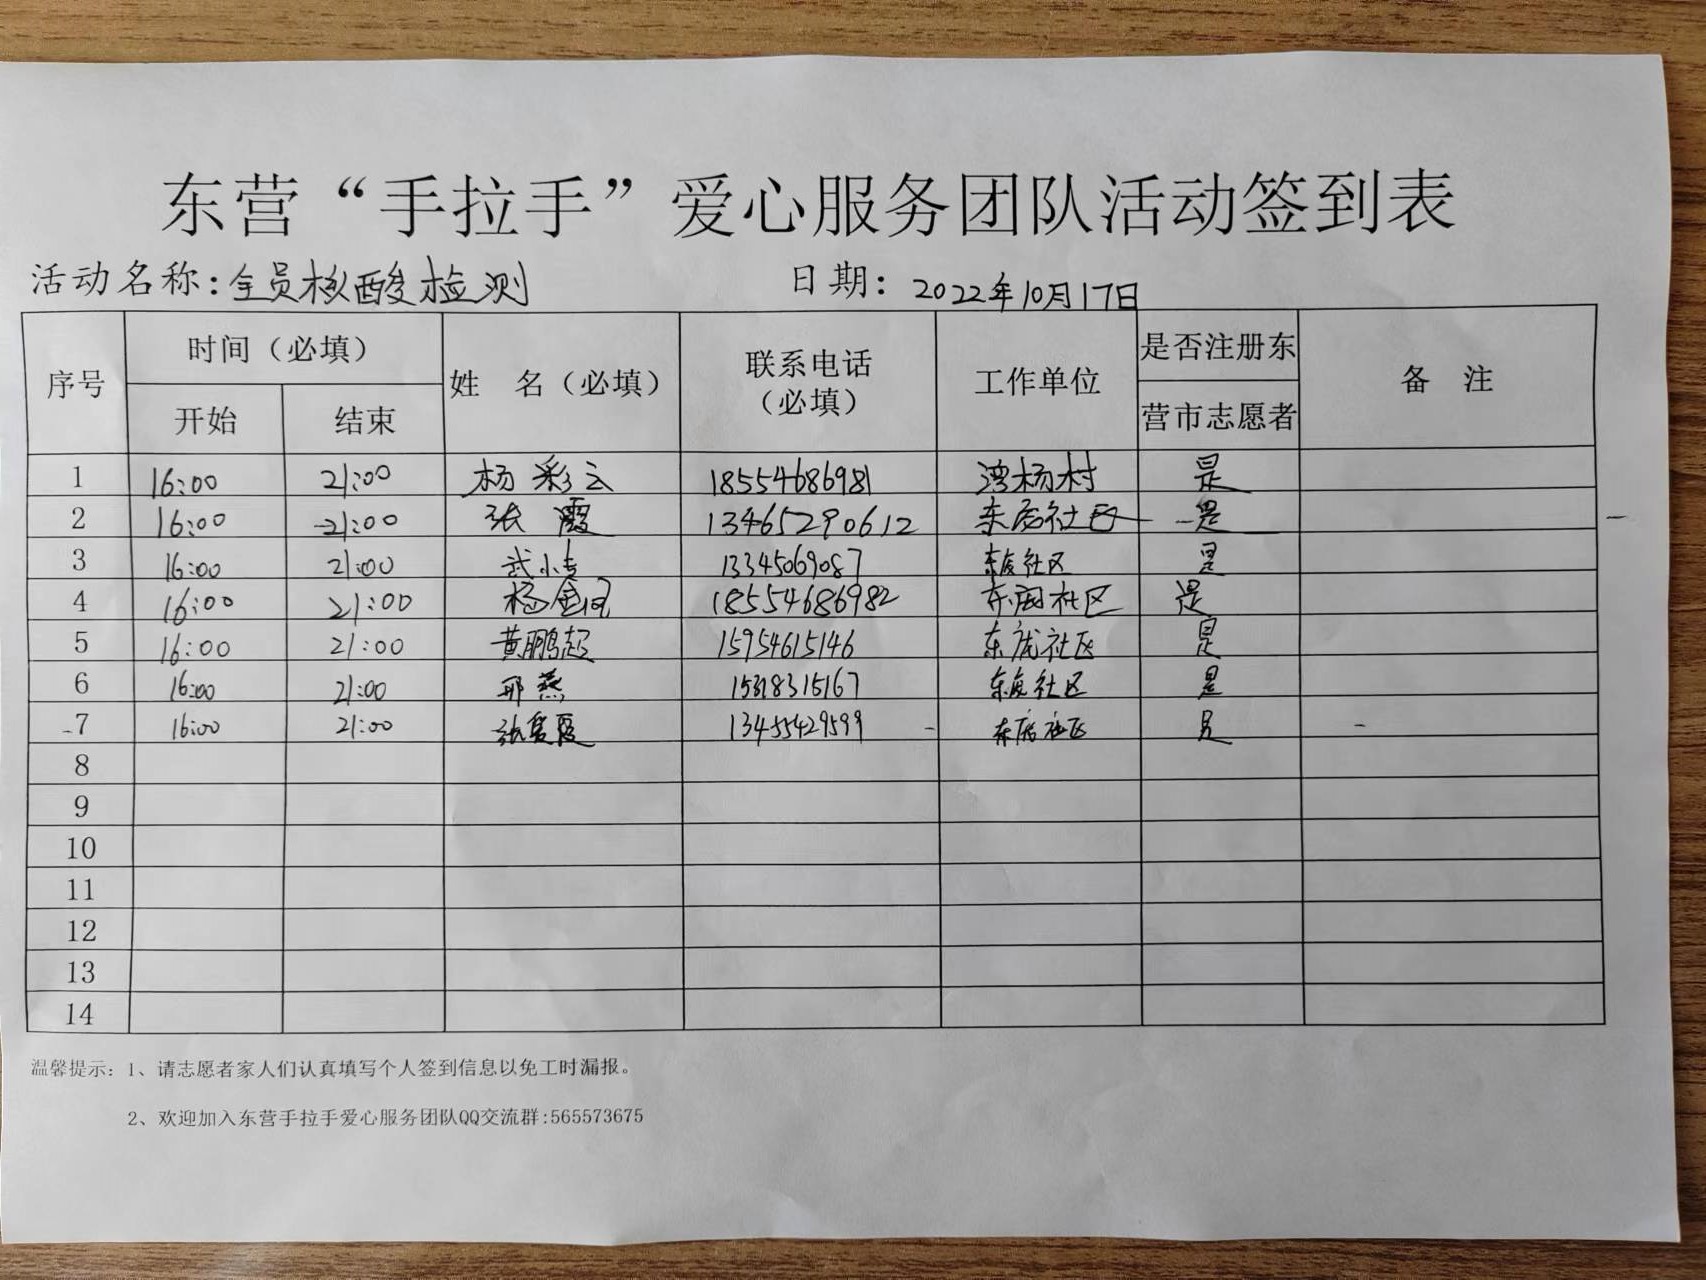 东营“手拉手”爱心服务团队活动签到表
活动名称：全员核酸检测 日期：2022年10月17日
序号 时间（必填） 姓 名（必填） 联系电话（必填） 工作单位 是否注册东营市志愿者 备 注
开始 结束
1 16:00 21:00 杨彩云 18554686981 湾杨村 是
2 16:00 21:00 张霞 13465290612 东 社区 是
3 16:00 21:00 武小 13345069087 东 社区 是
4 16:00 21:00 杨金凤 18554686982 东 社区 是
5 16:00 21:00 黄鹏超 15954615146 东 社区 是
6 16:00 21:00 邢燕 15318315167 东 社区 是
7 16:00 21:00 张夏 13455429599 东 社区 是
8
9
10
11
12
13
14
温馨提示：1、请志愿者家人们认真填写个人签到信息以免工时漏报。
2、欢迎加入东营手拉手爱心服务团队QQ交流群:565573675